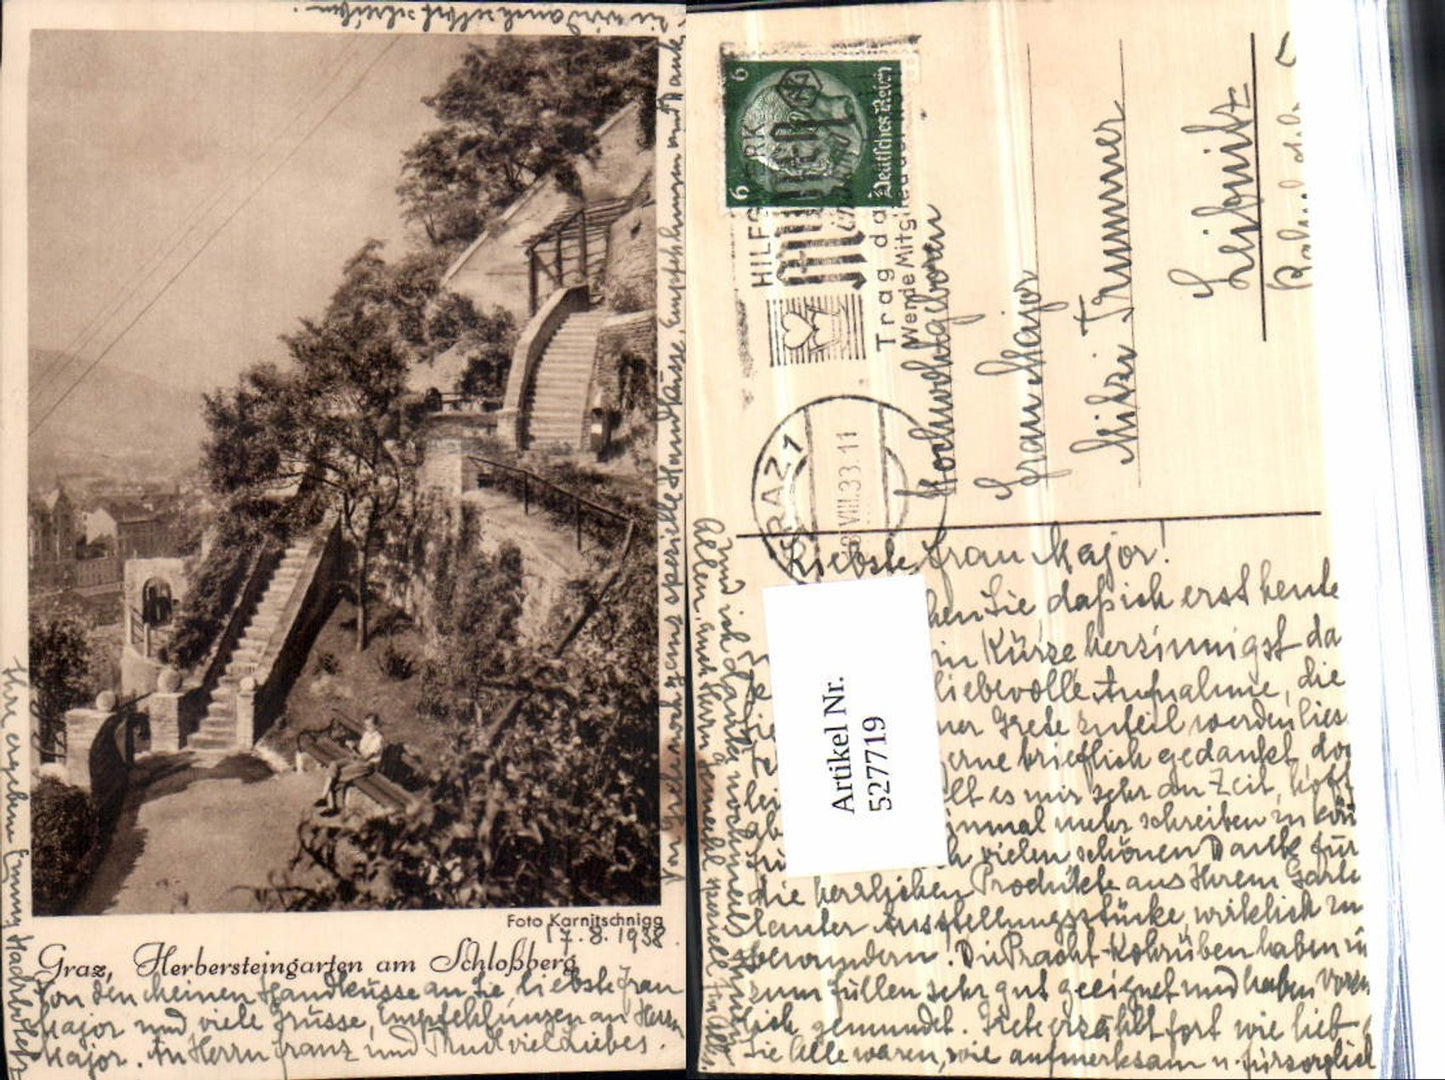 Foto Karnitschnigg
17.8.1938.
Graz, Herbersteingarten am Schloßberg
Von den Meinen Handküsse an Sie, liebste Frau
Major und viele Grüsse, Empfehlungen an Herrn
Major. An Herrn Franz und Trudl viel Liebes.
Ihre ergebene Emmy
Von Gretl noch ganz spezielle Handküsse, Empfehlungen und Dank
sie wird auch selbst schreiben.
6 6
Deutsches Reich
Trag da
Wende Mitgl
GRAZ 1
Hochwohlgeboren
Frau Major
Mitzi Trummer
Leibnitz
Liebste Frau Major!
Sie daß ich erst heute
in Kürze herzinnigst da
liebevolle Aufnahme, die
Grete zuteil werden lies
gerne brieflich gedankt, doch
es mir sehr an Zeit, hoff
einmal mehr schreiben zu kön
vielen schönen Dank für
die herrlichen Produkte aus Ihrem Garte
lauter Ausstellungsstücke, wirklich zu
bewundern. Die Pracht-Kohlrüben haben
zum Füllen sehr gut geeignet und haben vorzü
lich gemundet. Grete erzählt fort wie lieb
Sie Alle waren, wie aufmerksam u. fürsorglich
und ich danke nochmals Ihnen
Allen, auch Herrn Gemahl speziell für Alles.
Artikel Nr.
527719